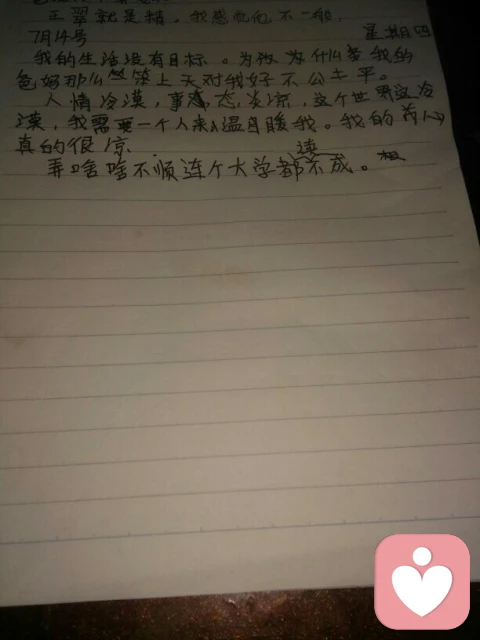 王翠就是精。我感觉他不一般.
7月14号 星期四
我的生活没有目标。为 为什么爹我的
爸妈那么笨上天对我好不公平。
人情冷漠,事态炎凉,这个世界这冷
漠,我需要一个人来温暖我。我的心
真的很凉.
弄啥啥不顺连个大学都读不成。